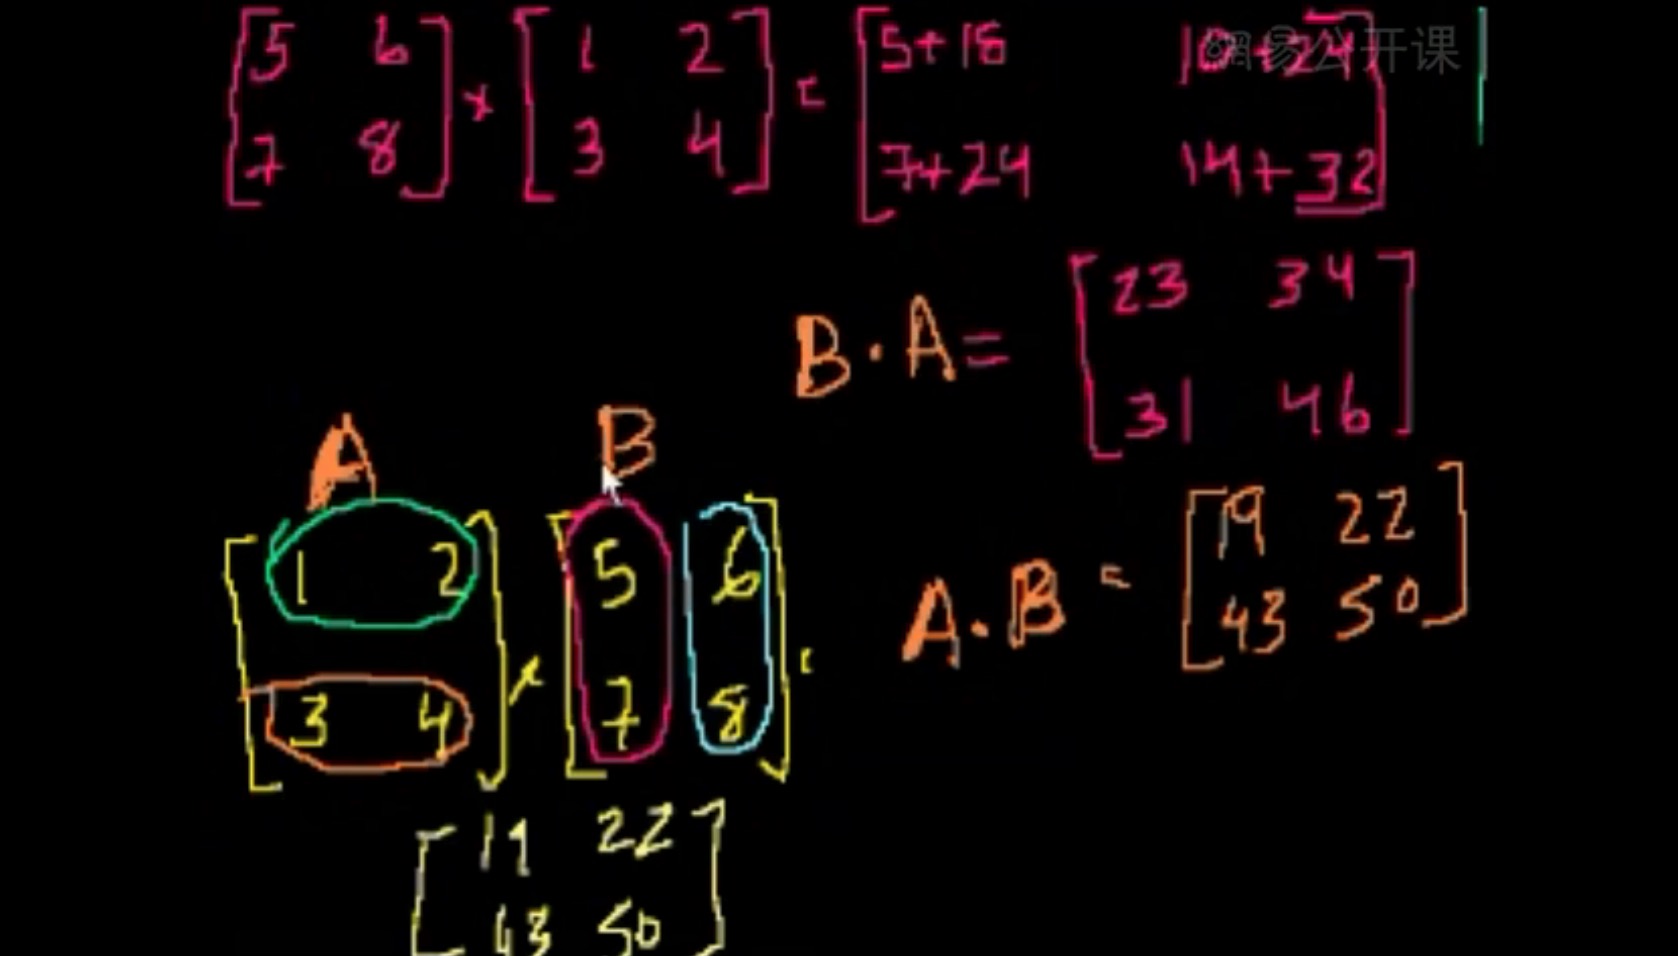 [5 6] × [1 2] = [5+18 10+24]
[7 8] [3 4] [7+24 14+32]
網易公开课
B·A= [23 34]
[31 46]
A B
[1 2] × [5 6] =
[3 4] [7 8]
A·B = [19 22]
[43 50]
[19 22]
[43 50]